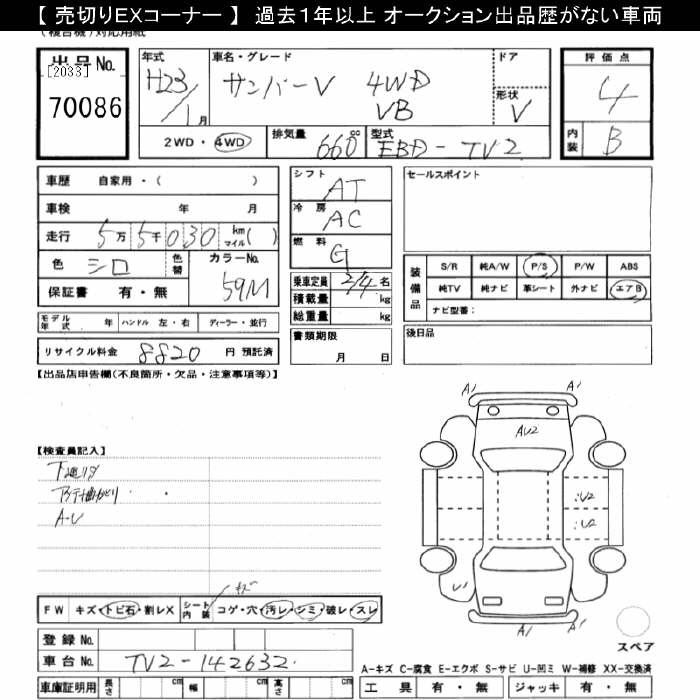 【 売切りEXコーナー 】 過去１年以上 オークション出品歴がない車両
(複合機)対応用紙
出品No.
[2033]
70086
年式
H23/1月
車名・グレード
サンバーV 4WD
VB
ドア
形状
V
評価点
4
内装
B
2WD・4WD
排気量
660cc
型式
EBD-TV2
車歴 自家用・( )
車検 年 月
走行 5万5千030km マイル( )
色 シロ 色替
カラーNo.
59M
保証書 有・無
シフト
AT
冷房
AC
燃料
G
乗車定員 2/4名
積載量 kg
総重量 kg
セールスポイント
装備品
S/R 純A/W P/S P/W ABS
純TV 純ナビ 革シート 外ナビ エアB
ナビ型番:
モデル年式 年 ハンドル 左・右 ディーラー・並行
書類期限
月 日
後日品
リサイクル料金 8820 円 預託済
【出品店申告欄(不良箇所・欠品・注意事項等)】
A1 A1
AU2
【検査員記入】
下廻りサ
アンテナ曲がり
A-U
:U2
:U2
U1
キズ
FW キズ・トビ石・割レX シート内装 コゲ・穴・汚レ・シミ・破レ・スレ
A1 A1
スペア
登録No.
車台No. TV2-142632
A-キズ C-腐食 E-エクボ S-サビ U-凹ミ W-補修 XX-交換済
車庫証明用 長さ cm 幅 cm 高さ cm
工具 有・無 ジャッキ 有・無